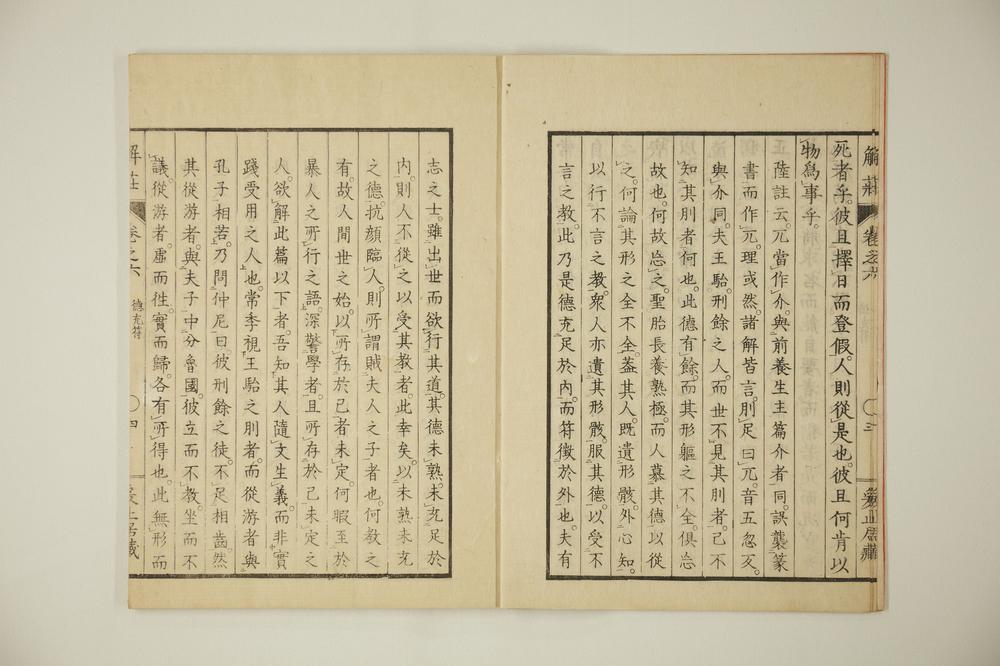 解莊 卷之六 〇三
死者乎。彼且擇日而登假。人則從是也。彼且何肯以
物爲事乎。
陸註云。兀當作介。與前養生主篇介者同。誤襲篆
書而作兀。理或然。諸解皆言。刖足曰兀。音五忽反。
與介同。夫王駘刑餘之人。而世不見其刖者。己不
知其刖者。何也。此德有餘。而其形軀之不全。俱忘
故也。何故忘之。聖胎長養熟極。而人慕其德以從
之。何論其形之全不全。葢其人。既遺形骸。外心知。
以行不言之教。衆人亦遺其形骸。服其德。以受不
言之教。此乃是德充足於內。而符徵於外也。夫有
志之士。雖出世而欲行其道。其德未熟。未充足於
内。則人不從之以受其教者。此幸矣。以未熟未充
之德。抗顏臨人。則所謂賊夫人之子者也。何教之
有。故人間世之始。以所存於己者未定。何暇至於
暴人之所行之語。深警學者。且所存於己未定之
人。欲解此篇以下者。吾知其人隨文生義。而非實
踐受用之人也。常季視王駘之刖者。而從游者與
孔子相若。乃問仲尼曰。彼刑餘之徒。不足相齒。然
其從游者。與夫子中分魯國。彼立而不教。坐而不
議。從游者。虛而徃。實而歸。各有所得也。此無形而
解莊 卷之六 德充符 〇四